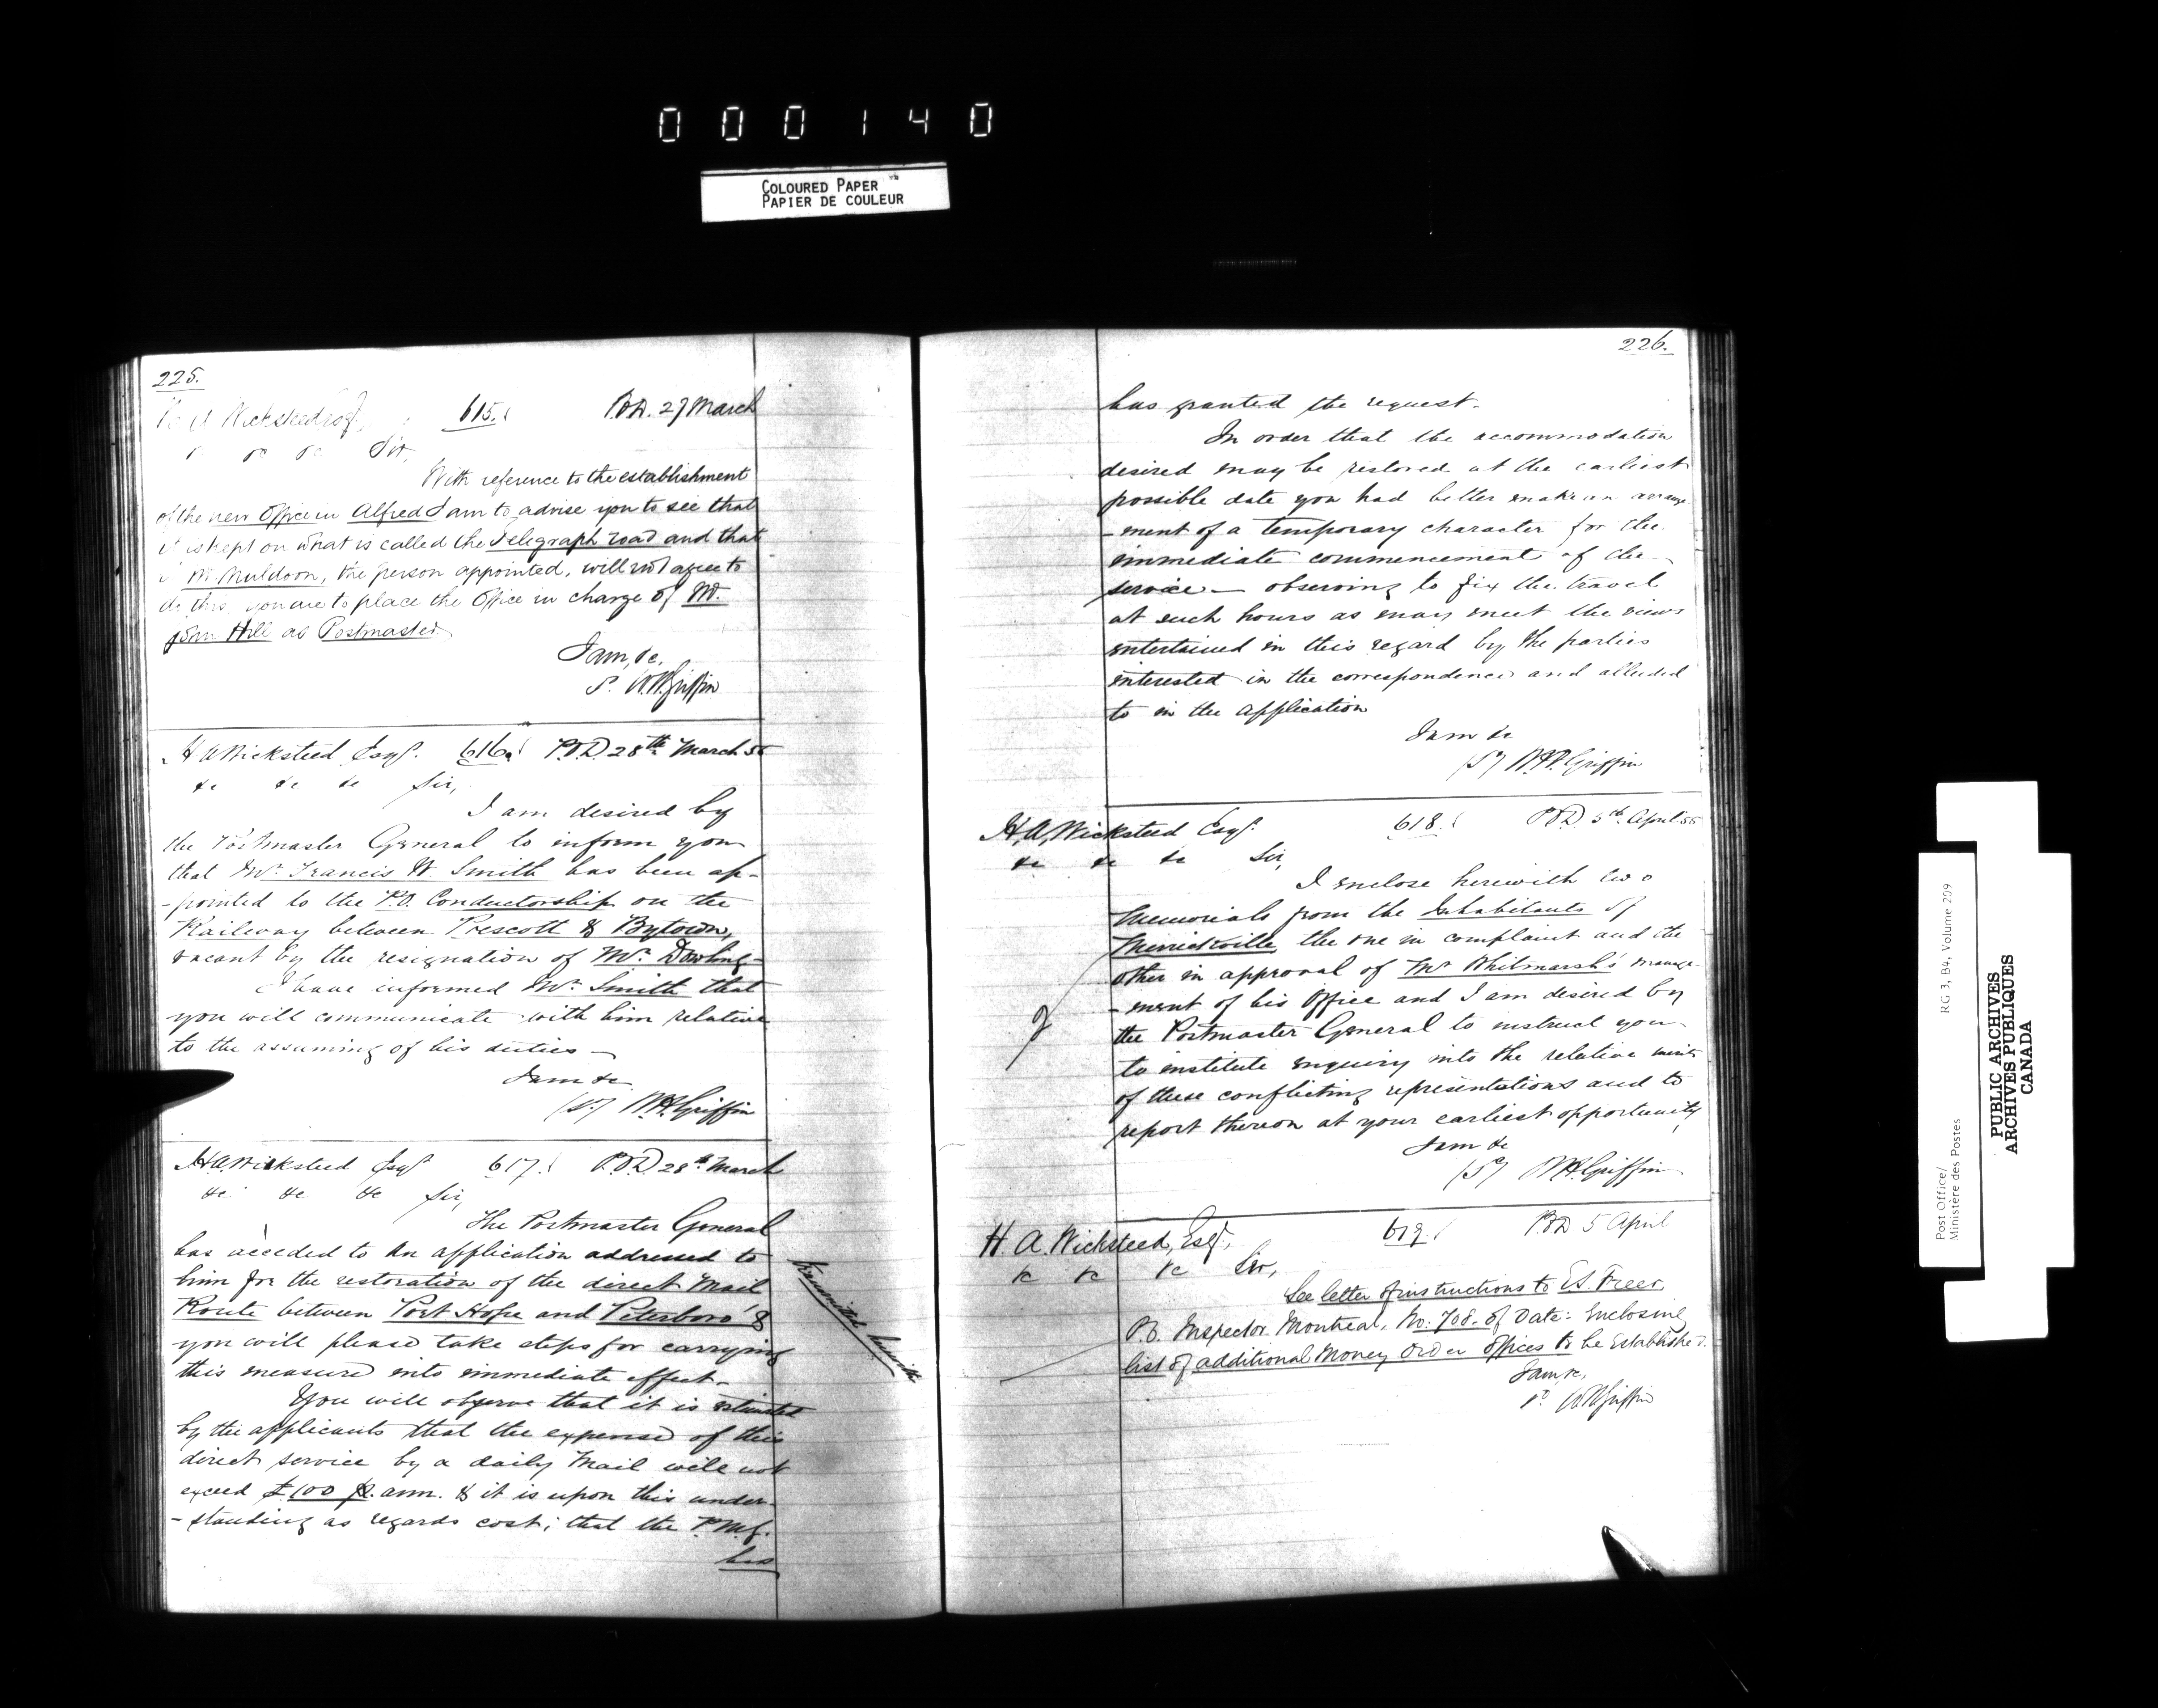 000140
COLOURED PAPER
PAPIER DE COULEUR
225.
H. A. Wicksteed Esqr. 615. P.O.D. 27 March
&c &c &c Sir,
With reference to the establishment
of the new Office in Alfred I am to advise you to see that
it is kept on what is called the Telegraph road and that
if Mr. Muldoon, the person appointed, will not agree to
do this you are to place the Office in charge of Mr.
John Hill as Postmaster.
I am, &c.
W.H. Griffin
H A Wicksteed Esqr. 616. P.O.D. 28th March 55
&c &c &c Sir,
I am desired by
the Postmaster General to inform you
that Mr. Francis W. Smith has been ap-
-pointed to the P.O. Conductorship on the
Railway between Prescott & Bytown,
vacant by the resignation of Mr. Dowling—
I have informed Mr. Smith that
you will communicate with him relative
to the assuming of his duties —
I am &c
(S.) W.H. Griffin
H.A. Wicksteed Esqr 617. P.O.D. 28th March
&c &c &c Sir,
The Postmaster General
has acceded to an application addressed to
him for the restoration of the direct Mail
Route between Port Hope and Peterboro' &
you will please take steps for carrying
this measure into immediate effect—
You will observe that it is estimated
by the applicants that the expense of this
direct service by a daily Mail will not
exceed £100 p. ann. & it is upon this under-
-standing as regards cost; that the P.M.G.
has
transmitted herewith
226.
has granted the request.
In order that the accommodation
desired may be restored at the earliest
possible date you had better make an arrange
-ment of a temporary character for the
immediate commencement of the
service — observing to fix the travel
at such hours as may meet the views
entertained in this regard by the parties
interested in the correspondence and alluded
to in the application
I am &c
(S) W.H. Griffin
H. A. Wicksteed Esqr. 618. P.O.D. 5th April 55
&c &c &c Sir,
I enclose herewith two
Memorials from the Inhabitants of
Merrickville the one in complaint and the
other in approval of Mr Whitmarsh's manage-
-ment of his Office and I am desired by
the Postmaster General to instruct you
to institute enquiry into the relative merits
of these conflicting representations and to
report thereon at your earliest opportunity
I am &c
(S) W.H. Griffin
H. A. Wicksteed, Esqr., 619. P.O.D. 5 April
&c &c &c Sir,
See letter of instructions to E.S. Freer,
P.O. Inspector Montreal, No. 708. of Date: Enclosing
list of additional Money Order Offices to be Established.
I am, &c.
W.H. Griffin
Post Office/
Ministère des Postes
RG 3, B4, Volume 209
PUBLIC ARCHIVES
ARCHIVES PUBLIQUES
CANADA